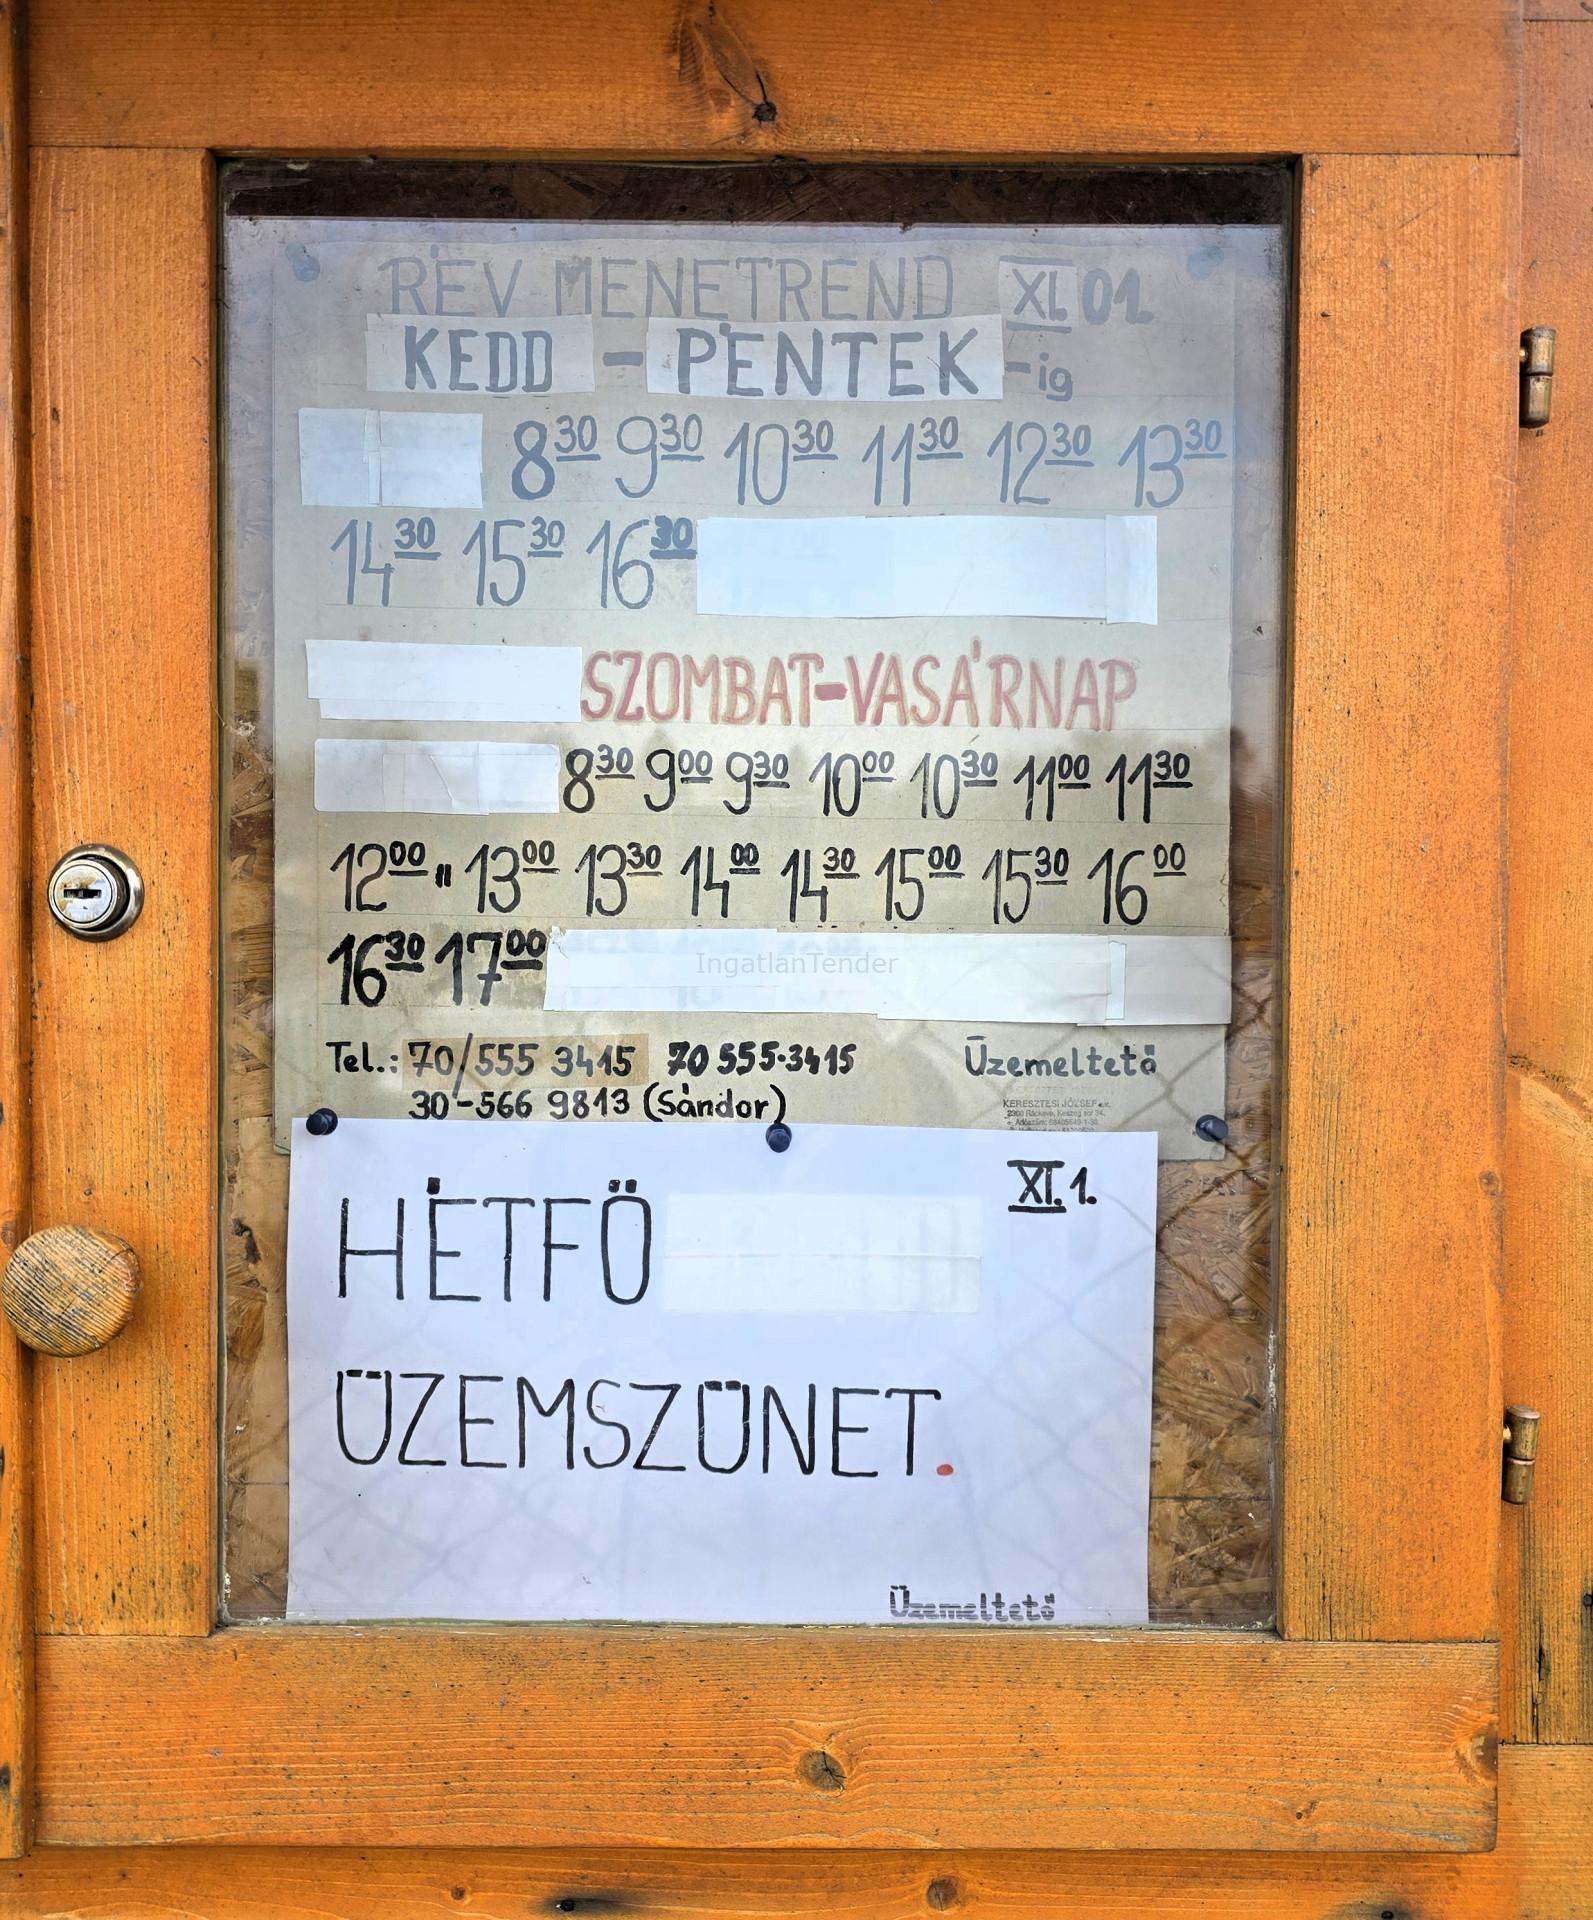 RÉV MENETREND XI. 01.
KEDD - PÉNTEK -ig
8 30 9 30 10 30 11 30 12 30 13 30
14 30 15 30 16 30
SZOMBAT-VASÁRNAP
8 30 9 00 9 30 10 00 10 30 11 00 11 30
12 00 " 13 00 13 30 14 00 14 30 15 00 15 30 16 00
16 30 17 00
IngatlanTender
Tel.: 70/555 3415 70 555-3415 Üzemeltető
30-566 9813 (Sándor)
KERESZTESI JÓZSEF e.v.
2300 Ráckeve, Keszeg sor 34.
XI. 1.
HÉTFŐ
ÜZEMSZÜNET.
Üzemeltető